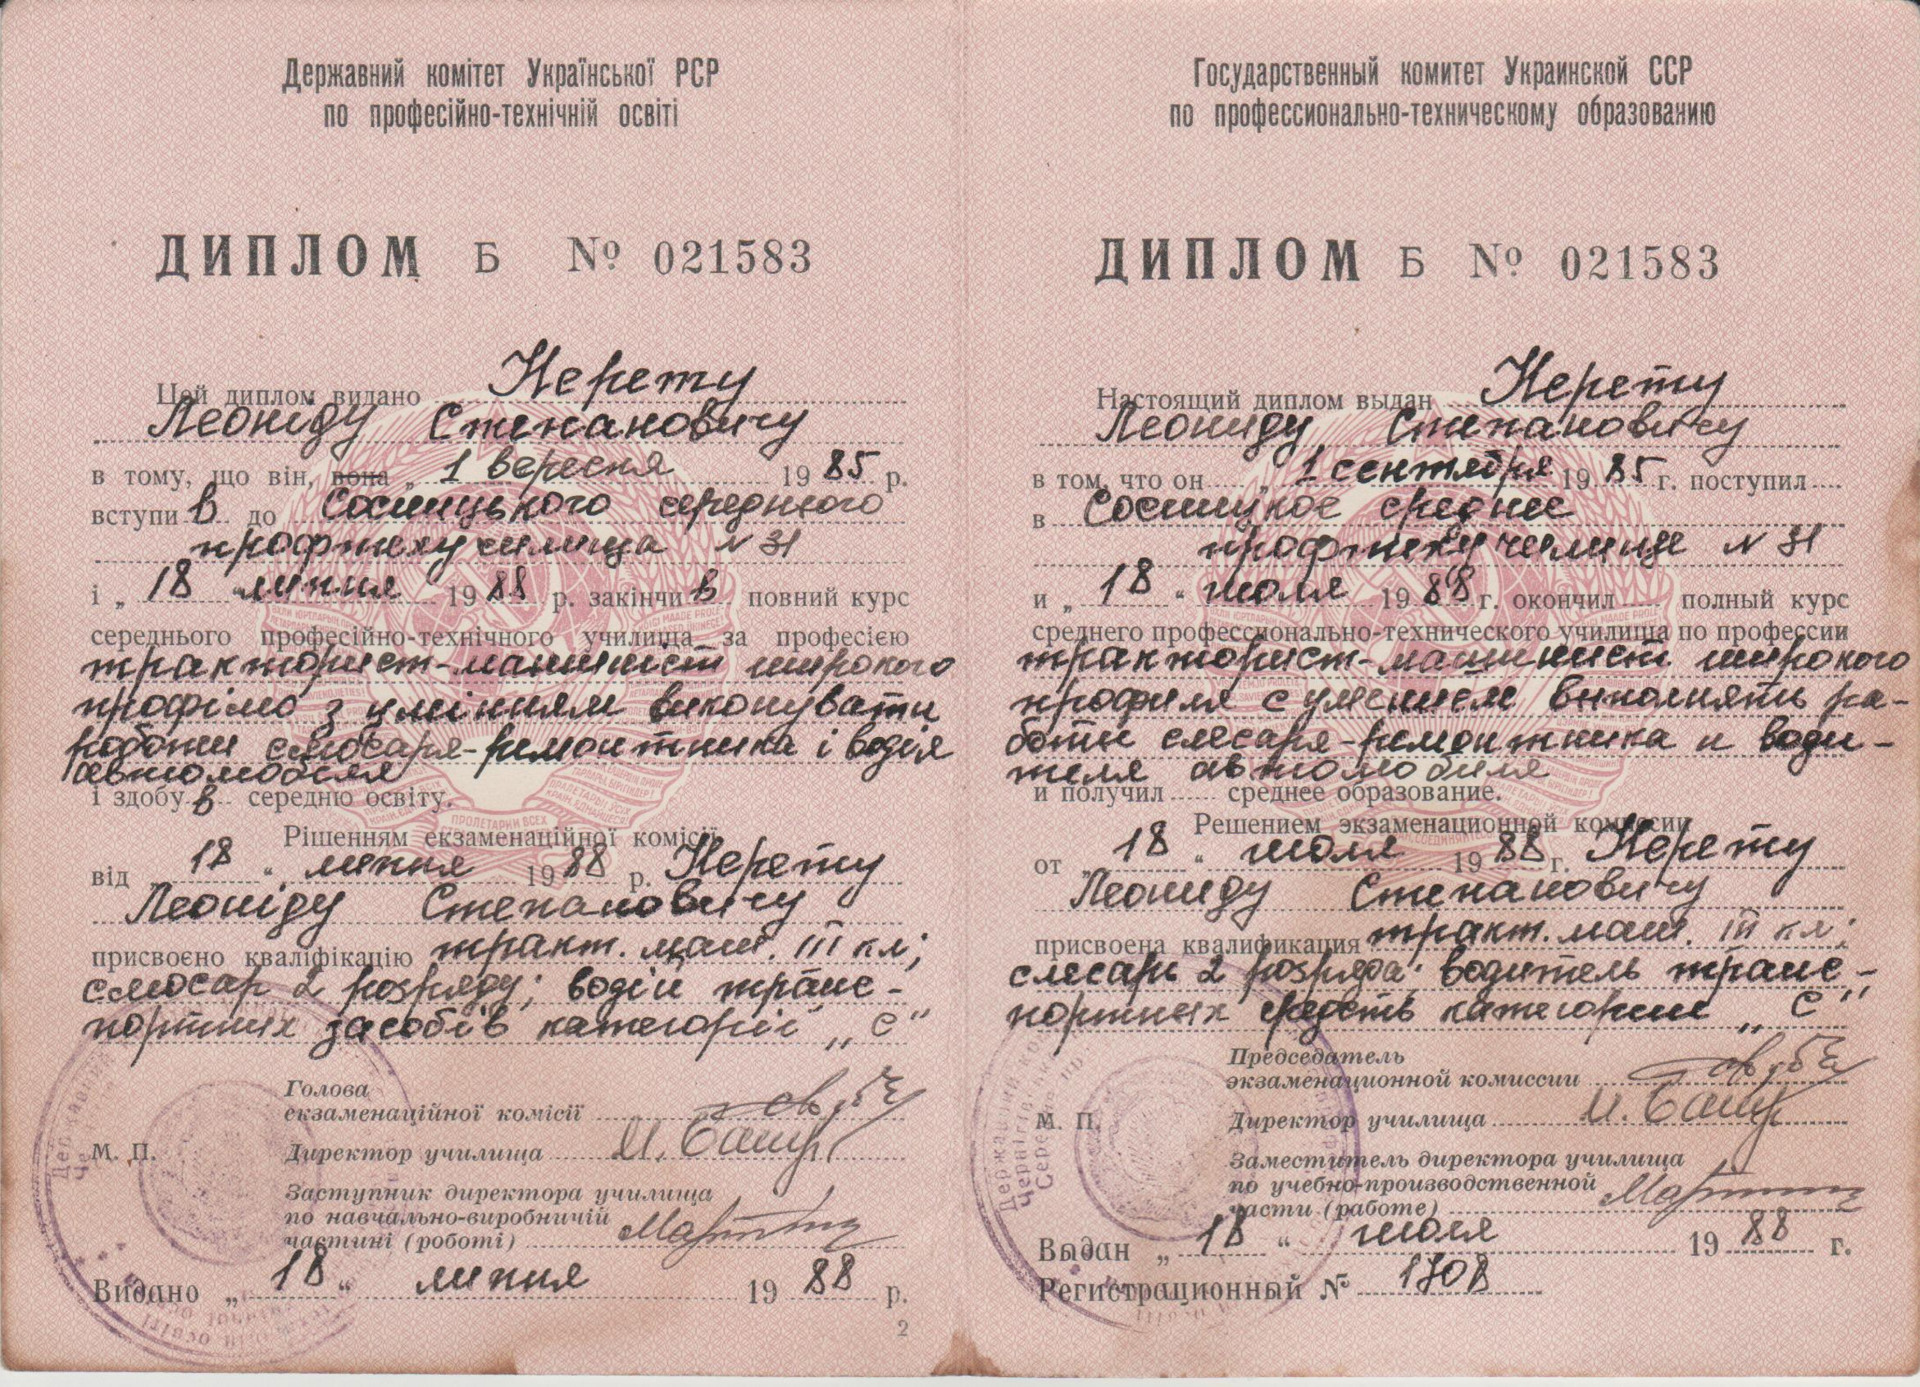 Державний комітет Української РСР
по професійно-технічній освіті
ДИПЛОМ Б № 021583
Цей диплом видано Нерету
Леоніду Степановичу
в тому, що він, вона „ 1 вересня 1985 р.
вступив до Сосницького середнього
профтехучилища N 31
і „ 18 " липня 1988 р. закінчив повний курс
середнього професійно-технічного училища за професією
тракторист-машиніст широкого
профілю з умінням виконувати
роботи слюсаря-ремонтника і водія
автомобіля
і здобув середню освіту.
Рішенням екзаменаційної комісії
від „ 18 " липня 1988 р. Нерету
Леоніду Степановичу
присвоєно кваліфікацію тракт. маш. III кл;
слюсар 2 розряду; водій транс-
портних засобів категорії „С"
Голова
екзаменаційної комісії
М. П. Директор училища И. Башур
Заступник директора училища
по навчально-виробничій
частині (роботі)
Видано „ 18 " липня 1988 р.
2
Государственный комитет Украинской ССР
по профессионально-техническому образованию
ДИПЛОМ Б № 021583
Настоящий диплом выдан Нерету
Леониду Степановичу
в том, что он „ 1 сентября 1985 г. поступил
в Сосницкое среднее
профтехучилище N 31
и „ 18 " июля 1988 г. окончил полный курс
среднего профессионально-технического училища по профессии
тракторист-машинист широкого
профиля с умением выполнять ра-
боты слесаря-ремонтника и води-
теля автомобиля
и получил среднее образование.
Решением экзаменационной комиссии
от „ 18 " июля 1988 г. Нерету
Леониду Степановичу
присвоена квалификация тракт. маш. III кл;
слесарь 2 розряда; водитель транс-
портных средств категории „С"
Председатель
экзаменационной комиссии
М. П. Директор училища И. Башур
Заместитель директора училища
по учебно-производственной
части (работе)
Выдан „ 18 " июля 1988 г.
Регистрационный № 1708